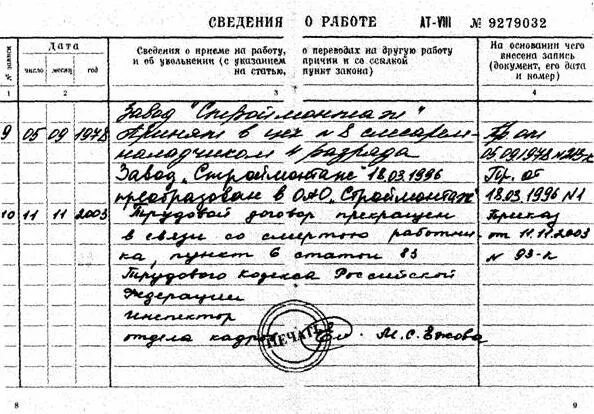 СВЕДЕНИЯ О РАБОТЕ АТ-VIII № 9279032
№ записи
Дата
Сведения о приеме на работу, о переводах на другую работу
и об увольнении (с указанием причин и со ссылкой
на статью, пункт закона)
На основании чего
внесена запись
(документ, его дата
и номер)
число месяц год
1 2 3 4
Завод "Строймонтаж"
9 05 09 1978 Принят в цех №8 слесарем- Пр. от
наладчиком 4 разряда 05.09.1978 №213-к
Завод "Строймонтаж" 18.03.1996 Пр. от
преобразован в ОАО "Строймонтаж" 18.03.1996 №1
10 11 11 2003 Трудовой договор прекращен Приказ
в связи со смертью работни- от 11.11.2003
ка, пункт 6 статьи 83 № 93-к
Трудового кодекса Российской
Федерации
Инспектор
отдела кадров М.С. Ежова
ПЕЧАТЬ
8 9